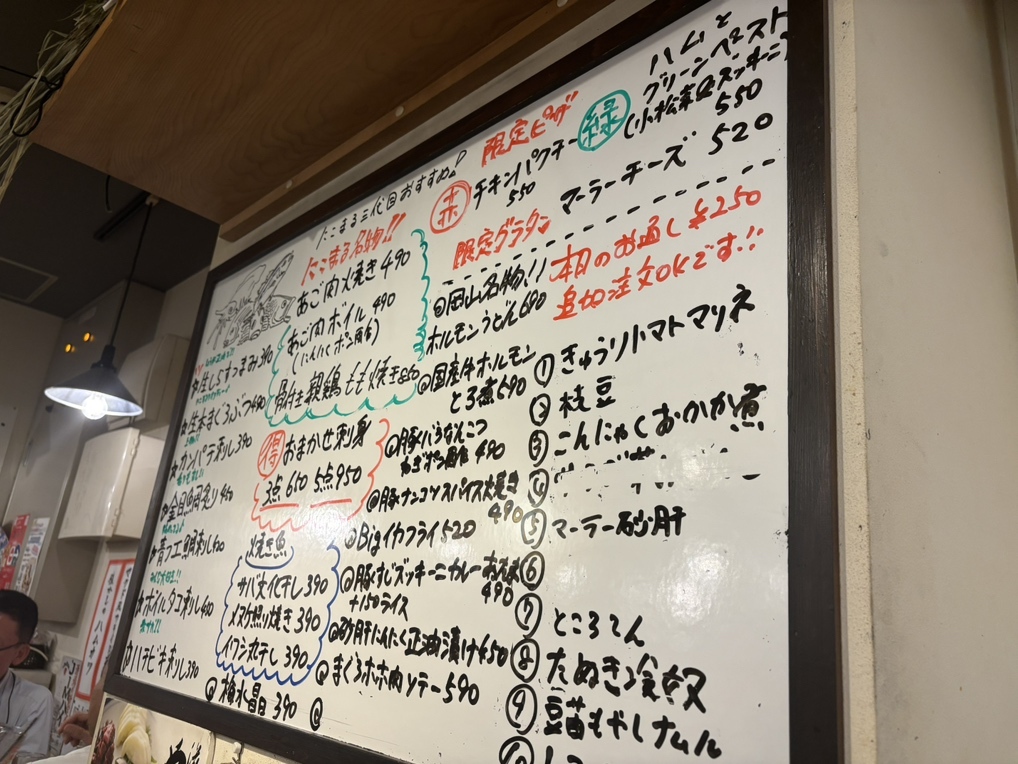 たこまる三代目おすすめ!!
たこまる名物!!
あご肉炙焼き 490
あご肉ボイル 490
(にんにくポン酢)
骨付き親鶏もも焼き 850
生しらすつまみ 390
生本まぐろぶつ 490
カンパチ刺し 390
金目鯛炙り 450
青フエ鯛刺し
ボイルタコ刺し
ハチビキ刺し 390
得 おまかせ刺身
3点 650 5点 950
焼き魚
サバ文化干し 390
メヌケ照り焼き 390
イワシ丸干し 390
梅水晶 390
限定ピザ
赤 チキンパクチー
550
緑 ハムと
グリーンペースト
(小松菜&ズッキーニ)
550
限定グラタン
マーラーチーズ 520
岡山名物!!
ホルモンうどん 690
国産牛ホルモン
とろ煮 690
豚ハラなんこつ
ねぎポン酢 490
豚ナンコツスパイス焼き
490
Bigイカフライ 520
豚すじズッキーニカレー
490
+150ライス
砂肝にんにく正油漬け 450
まぐろホホ肉ソテー 590
本日のお通し ¥250
追加注文OKです!!
① きゅうりトマトマリネ
② 枝豆
③ こんにゃくおかか煮
④
⑤ マーラー砂肝
⑥
⑦ ところてん
⑧ たぬき冷奴
⑨ 豆苗もやしナムル
⑩